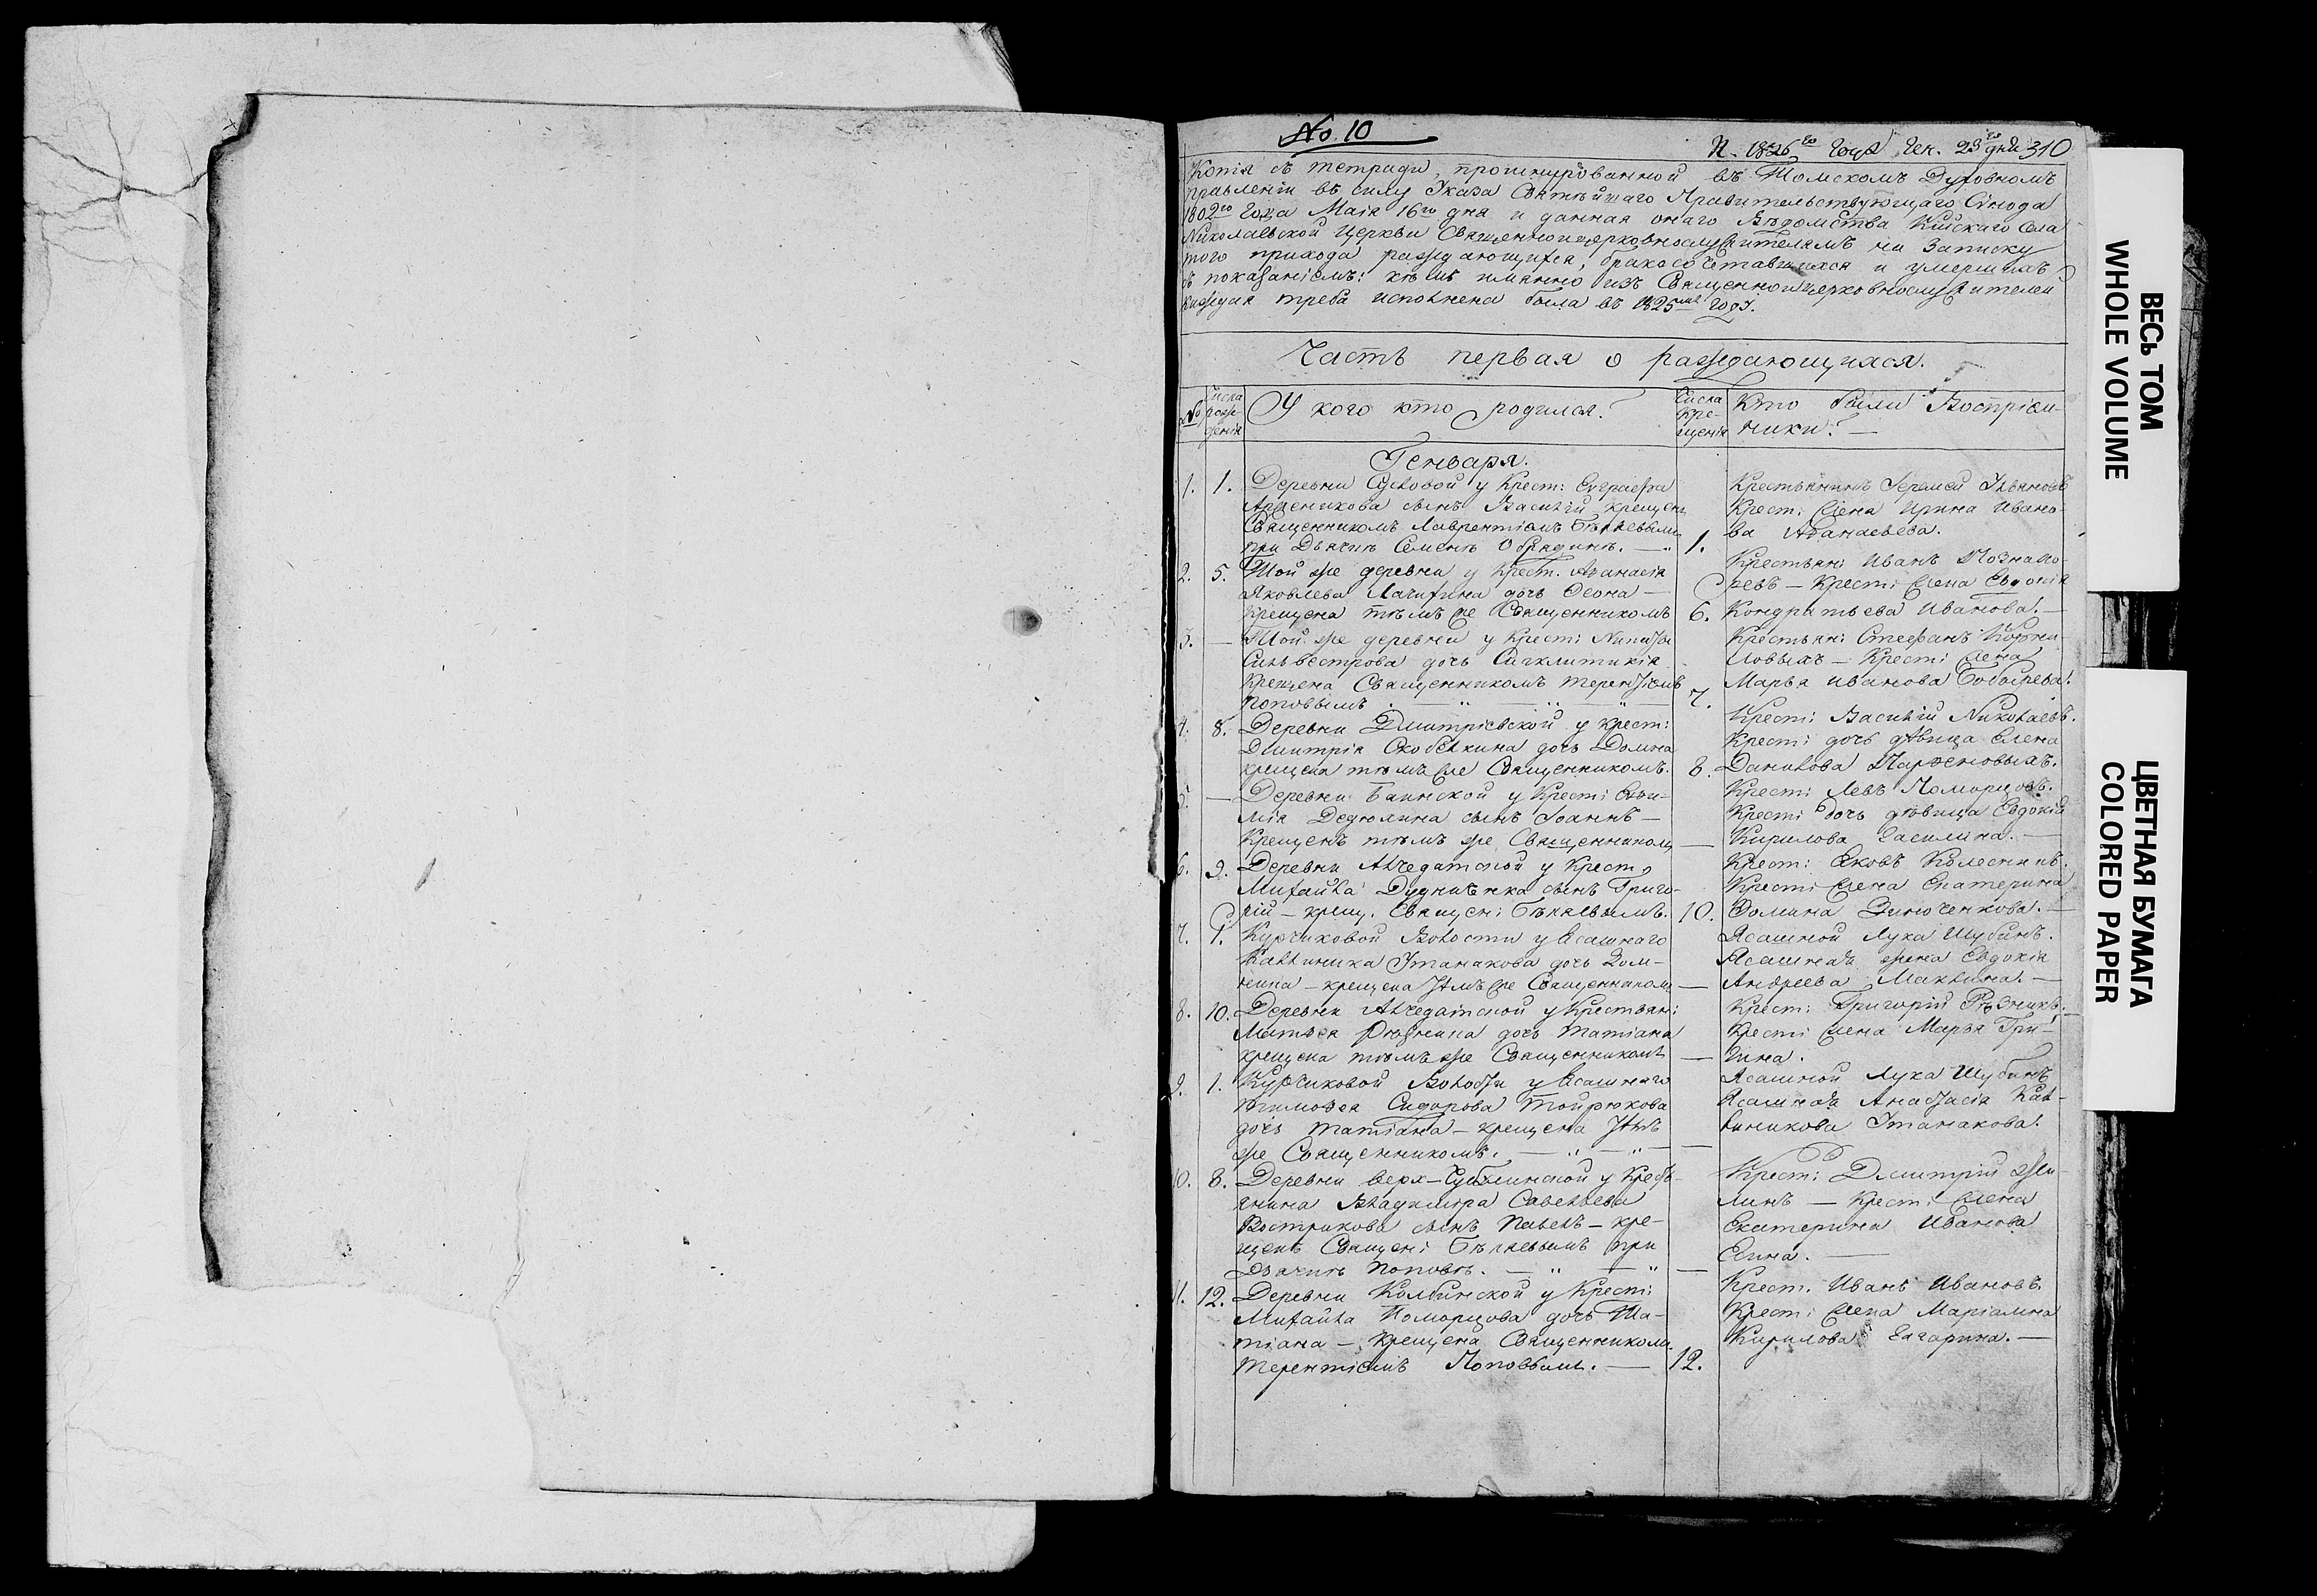 No. 10
П. 1826го года Ген. 23го дня 310
Копія съ тетради, прошнурованной въ Томскомъ Духовномъ
правленіи въ силу Указа Святѣйшаго Правительствующаго Сѵнода
1802го года Маія 16го дня и данная онаго Вѣдомства Кійскаго села
Николаевской Церкви Священноицерковнослужителямъ на записку
того прихода раждающихся, бракосочетавшихся и умершихъ
съ показаніемъ: кѣмъ имянно изъ Священноицерковнослужителей
каждая треба исполнена была въ 1825мъ году.
Часть первая о раждающихся.
№
Числа рожденія
У кого кто родился?
Числа крещенія
Кто были Воспріем-
ники? —
Генваря.
1. 1. Деревни Сусловой у Крест: Евграфа
сынъ Василій крещенъ
Священникомъ Лаврентіемъ Бѣляевымъ
при Дьячкѣ Семенѣ — „ 1.
Крестьянинъ Іеремей Ивановъ
Крест: жена Ирина Ивано-
ва Аѳанасьева.
2. 5. Той же деревни у Крест. Аѳанасія
Яковлева дочь —
крещена тѣмъ же Священникомъ 6.
Крестьян: Иванъ
— Крест: жена Евдокія
Кондратьева Иванова. —
3. — Той же деревни у Крест: Никиты
Сильвестрова дочь Сигклитикія
крещена Священникомъ Терентіемъ
Поповымъ 7.
Крестьян: Стефанъ Корни-
ловыхъ — Крест: жена
Марья Иванова
4. 8. Деревни Дмитріевской у Крест:
Дмитрія Скобелкина дочь Домна
крещена тѣмъ же Священникомъ. 8.
Крест: Василій Николаевъ.
Крест: дочь дѣвица Елена
Данилова Парѳеновыхъ.
5. — Деревни Баимской у Крест:
Дедюхина сынъ Іоаннъ —
Крещенъ тѣмъ же Священникомъ —
Крест: Левъ Поморцовъ.
Крест: дочь дѣвица Евдокія
Кирилова —
6. 9. Деревни Алчедатской у Крест,
Михайла Дудничѣнка сынъ Григо-
рій — крещ. Священ: Бѣляевымъ. 10.
Крест: Яковъ Колесникъ.
Крест: жена Екатерина
Ѳомина Зиноченкова. —
7. 1. Курчиковой Волости у Ясашнаго
Калтиника Итанакова дочь Дом-
нина — крещена тѣмъ же Священникомъ —
Ясашной Лука Шубинъ.
Ясашная жена Евдокія
Андреева —
8. 10. Деревни Алчедатской у Крестьян:
Матвея Рѣзника дочь Татіана
крещена тѣмъ же Священникомъ —
Крест: Григорій Рѣзникъ.
Крест: жена Марья Гри-
9. 1. Курчиковой Волости у Ясашнаго
Тимоѳея Сидорова Тойрюкова
дочь Татіана — крещена тѣмъ
же Священникомъ. — „ — „ —
Ясашной Лука Шубинъ
Ясашная Анастасія Кал-
тиникова Итанакова.
10. 8. Деревни Верх-Чебулинской у Кресть-
янина Владимѣра Савельева
Вострикова сынъ Павелъ — кре-
щенъ Священ: Бѣляевымъ при
Дьячкѣ Поповѣ. — „ — „ —
Крест: Дмитрій Жи-
линъ — Крест: жена
Екатерина Иванова
11. 12. Деревни Колбинской у Крест:
Михайла Поморцова дочь Та-
тіана — крещена Священникомъ
Терентіемъ Поповымъ. — 12.
Крест. Иванъ Ивановъ.
Крест: жена Маріамна
Кирилова —
ВЕСЬ ТОМ
WHOLE VOLUME
ЦВЕТНАЯ БУМАГА
COLORED PAPER